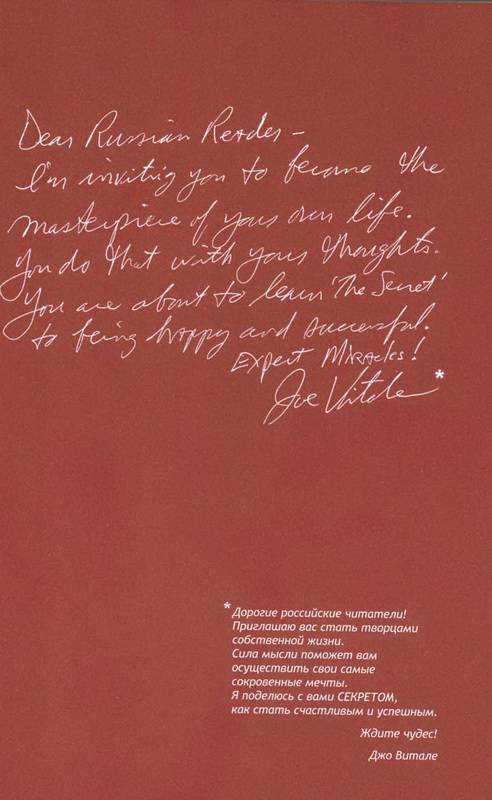 Dear Russian Reader —
I'm inviting you to become the
masterpiece of your own life.
You do that with your thoughts.
You are about to learn 'The Secret'
to being happy and successful.
Expect Miracles!
Joe Vitale *
* Дорогие российские читатели!
Приглашаю вас стать творцами
собственной жизни.
Сила мысли поможет вам
осуществить свои самые
сокровенные мечты.
Я поделюсь с вами СЕКРЕТОМ,
как стать счастливым и успешным.
Ждите чудес!
Джо Витале